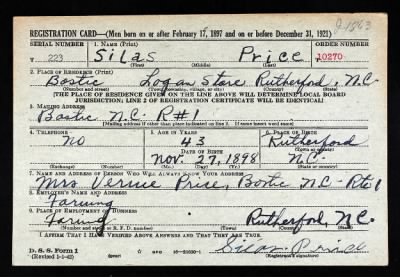 REGISTRATION CARD—(Men born on or after February 17, 1897 and on or before December 31, 1921)
SERIAL NUMBER 1. NAME (Print) ORDER NUMBER
V 223 Silas Price 10270
(First) (Middle) (Last)
2. PLACE OF RESIDENCE (Print)
Bostic Logan Store Rutherford, N.C.
(Number and street) (Town, township, village, or city) (County) (State)
[THE PLACE OF RESIDENCE GIVEN ON THE LINE ABOVE WILL DETERMINE LOCAL BOARD
JURISDICTION; LINE 2 OF REGISTRATION CERTIFICATE WILL BE IDENTICAL]
3. MAILING ADDRESS
Bostic N.C. R#1
[Mailing address if other than place indicated on line 2. If same insert word same]
4. TELEPHONE 5. AGE IN YEARS 6. PLACE OF BIRTH
NO 43 Rutherford
DATE OF BIRTH (Town or county)
Nov. 27, 1898 N.C.
(Exchange) (Number) (Mo.) (Day) (Yr.) (State or country)
7. NAME AND ADDRESS OF PERSON WHO WILL ALWAYS KNOW YOUR ADDRESS
Mrs Price, Bostic N.C. Rte 1
8. EMPLOYER'S NAME AND ADDRESS
Farming
9. PLACE OF EMPLOYMENT OR BUSINESS
Farming Rutherford, N.C.
(Number and street or R. F. D. number) (Town) (County) (State)
I AFFIRM THAT I HAVE VERIFIED ABOVE ANSWERS AND THAT THEY ARE TRUE.
D. S. S. Form 1
(Revised 1-1-42) (over) Silas Price